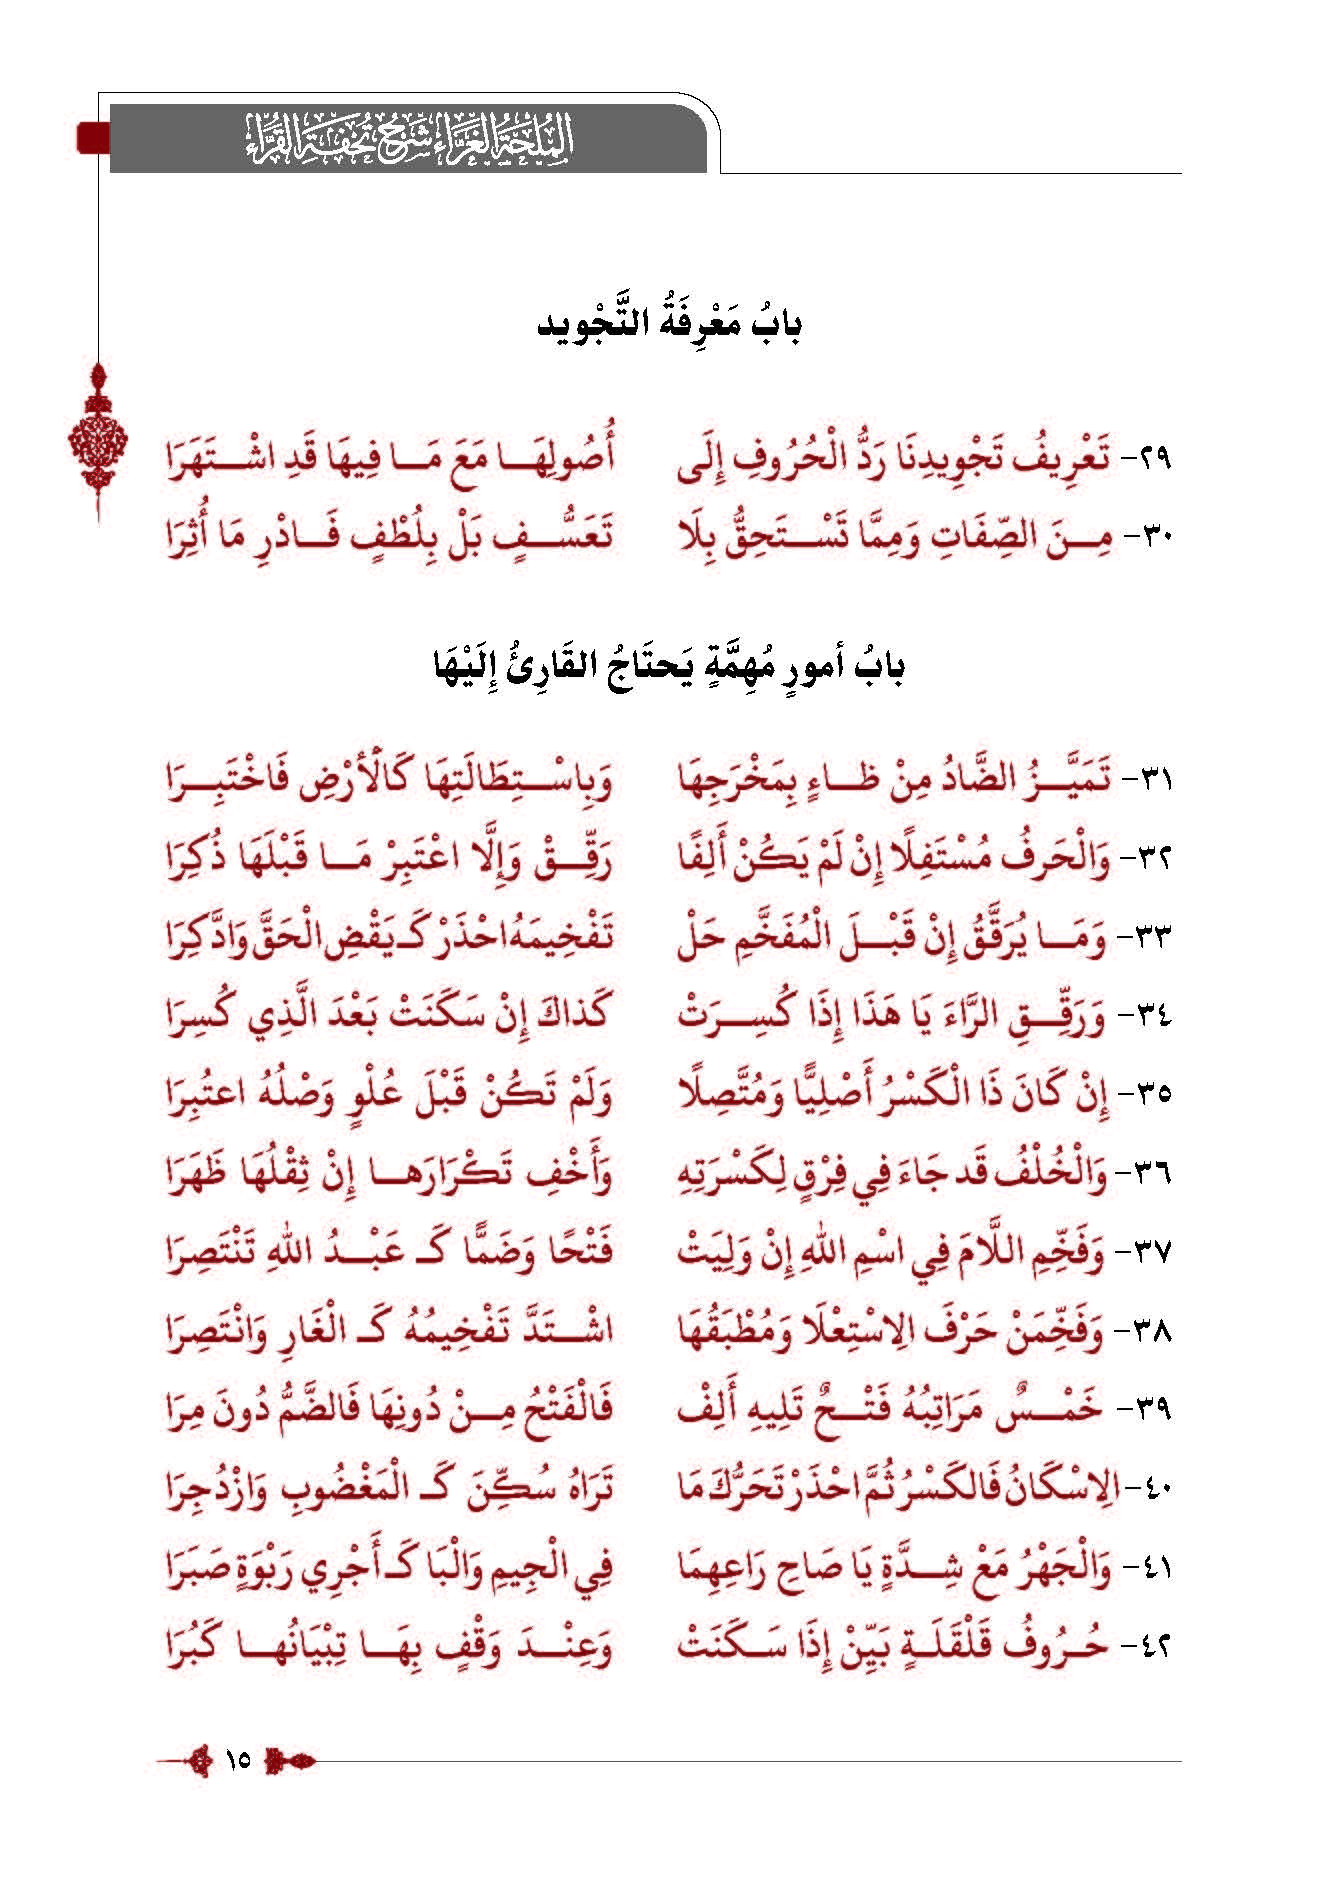 المُلْحَةُ الغَرَّاء شَرْحُ تُحْفَةِ القُرَّاء
بابُ مَعْرِفَةُ التَّجْويد
٢٩- تَعْرِيفُ تَجْوِيدِنَا رَدُّ الْحُرُوفِ إِلَى أُصُولِهَا مَعَ مَا فِيهَا قَدِ اشْتَهَرَا
٣٠- مِنَ الصِّفَاتِ وَمِمَّا تَسْتَحِقُّ بِلَا تَعَسُّفٍ بَلْ بِلُطْفٍ فَادْرِ مَا أُثِرَا
بابُ أمورٍ مُهِمَّةٍ يَحتَاجُ القَارِئُ إِلَيْهَا
٣١- تَمَيَّزُ الضَّادُ مِنْ ظاءٍ بِمَخْرَجِهَا وَبِاسْتِطَالَتِهَا كَالْأَرْضِ فَاخْتَبِرَا
٣٢- وَالْحَرفُ مُسْتَفِلًا إِنْ لَمْ يَكُنْ أَلِفًا رَقِّقْ وَإِلَّا اعْتَبِرْ مَا قَبْلَهَا ذُكِرَا
٣٣- وَمَا يُرَقَّقُ إِنْ قَبْلَ الْمُفَخَّمِ حَلْ تَفْخِيمَهُ احْذَرْ كَـ يَقْضِ الْحَقَّ وَادَّكِرَا
٣٤- وَرَقِّقِ الرَّاءَ يَا هَذَا إِذَا كُسِرَتْ كَذاكَ إِنْ سَكَنَتْ بَعْدَ الَّذِي كُسِرَا
٣٥- إِنْ كَانَ ذَا الْكَسْرُ أَصْلِيًّا وَمُتَّصِلًا وَلَمْ تَكُنْ قَبْلَ عُلْوٍ وَصْلُهُ اعتُبِرَا
٣٦- وَالْخُلْفُ قَد جَاءَ فِي فِرْقٍ لِكَسْرَتِهِ وَأَخْفِ تَكْرَارَها إِنْ ثِقْلُهَا ظَهَرَا
٣٧- وَفَخِّمِ اللَّامَ فِي اسْمِ اللهِ إِنْ وَلِيَتْ فَتْحًا وَضَمًّا كَـ عَبْدُ اللهِ تَنْتَصِرَا
٣٨- وَفَخِّمَنْ حَرْفَ الِاسْتِعْلَا وَمُطْبَقُهَا اشْتَدَّ تَفْخِيمُهُ كَـ الْغَارِ وَانْتَصِرَا
٣٩- خَمْسٌ مَرَاتِبُهُ فَتْحٌ تَلِيهِ أَلِفْ فَالْفَتْحُ مِنْ دُونِهَا فَالضَّمُّ دُونَ مِرَا
٤٠- الِاسْكَانُ فَالكَسْرُ ثُمَّ احْذَرْ تَحَرُّكَ مَا تَرَاهُ سُكِّنَ كَـ الْمَغْضُوبِ وَازْدُجِرَا
٤١- وَالْجَهْرُ مَعْ شِدَّةٍ يَا صَاحِ رَاعِهِمَا فِي الْجِيمِ وَالْبَا كَـ أَجْرِي رَبْوَةٍ صَبَرَا
٤٢- حُرُوفُ قَلْقَلَةٍ بَيِّنْ إِذَا سَكَنَتْ وَعِنْدَ وَقْفٍ بِهَا تِبْيَانُها كَبُرَا
١٥